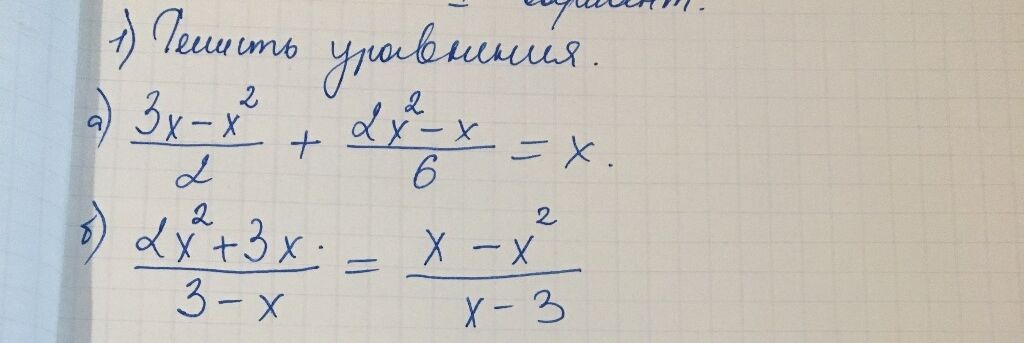 вариант.
1) Решить уравнения.
а) (3x - x²)/2 + (2x² - x)/6 = x.
б) (2x² + 3x)/(3 - x) = (x - x²)/(x - 3)